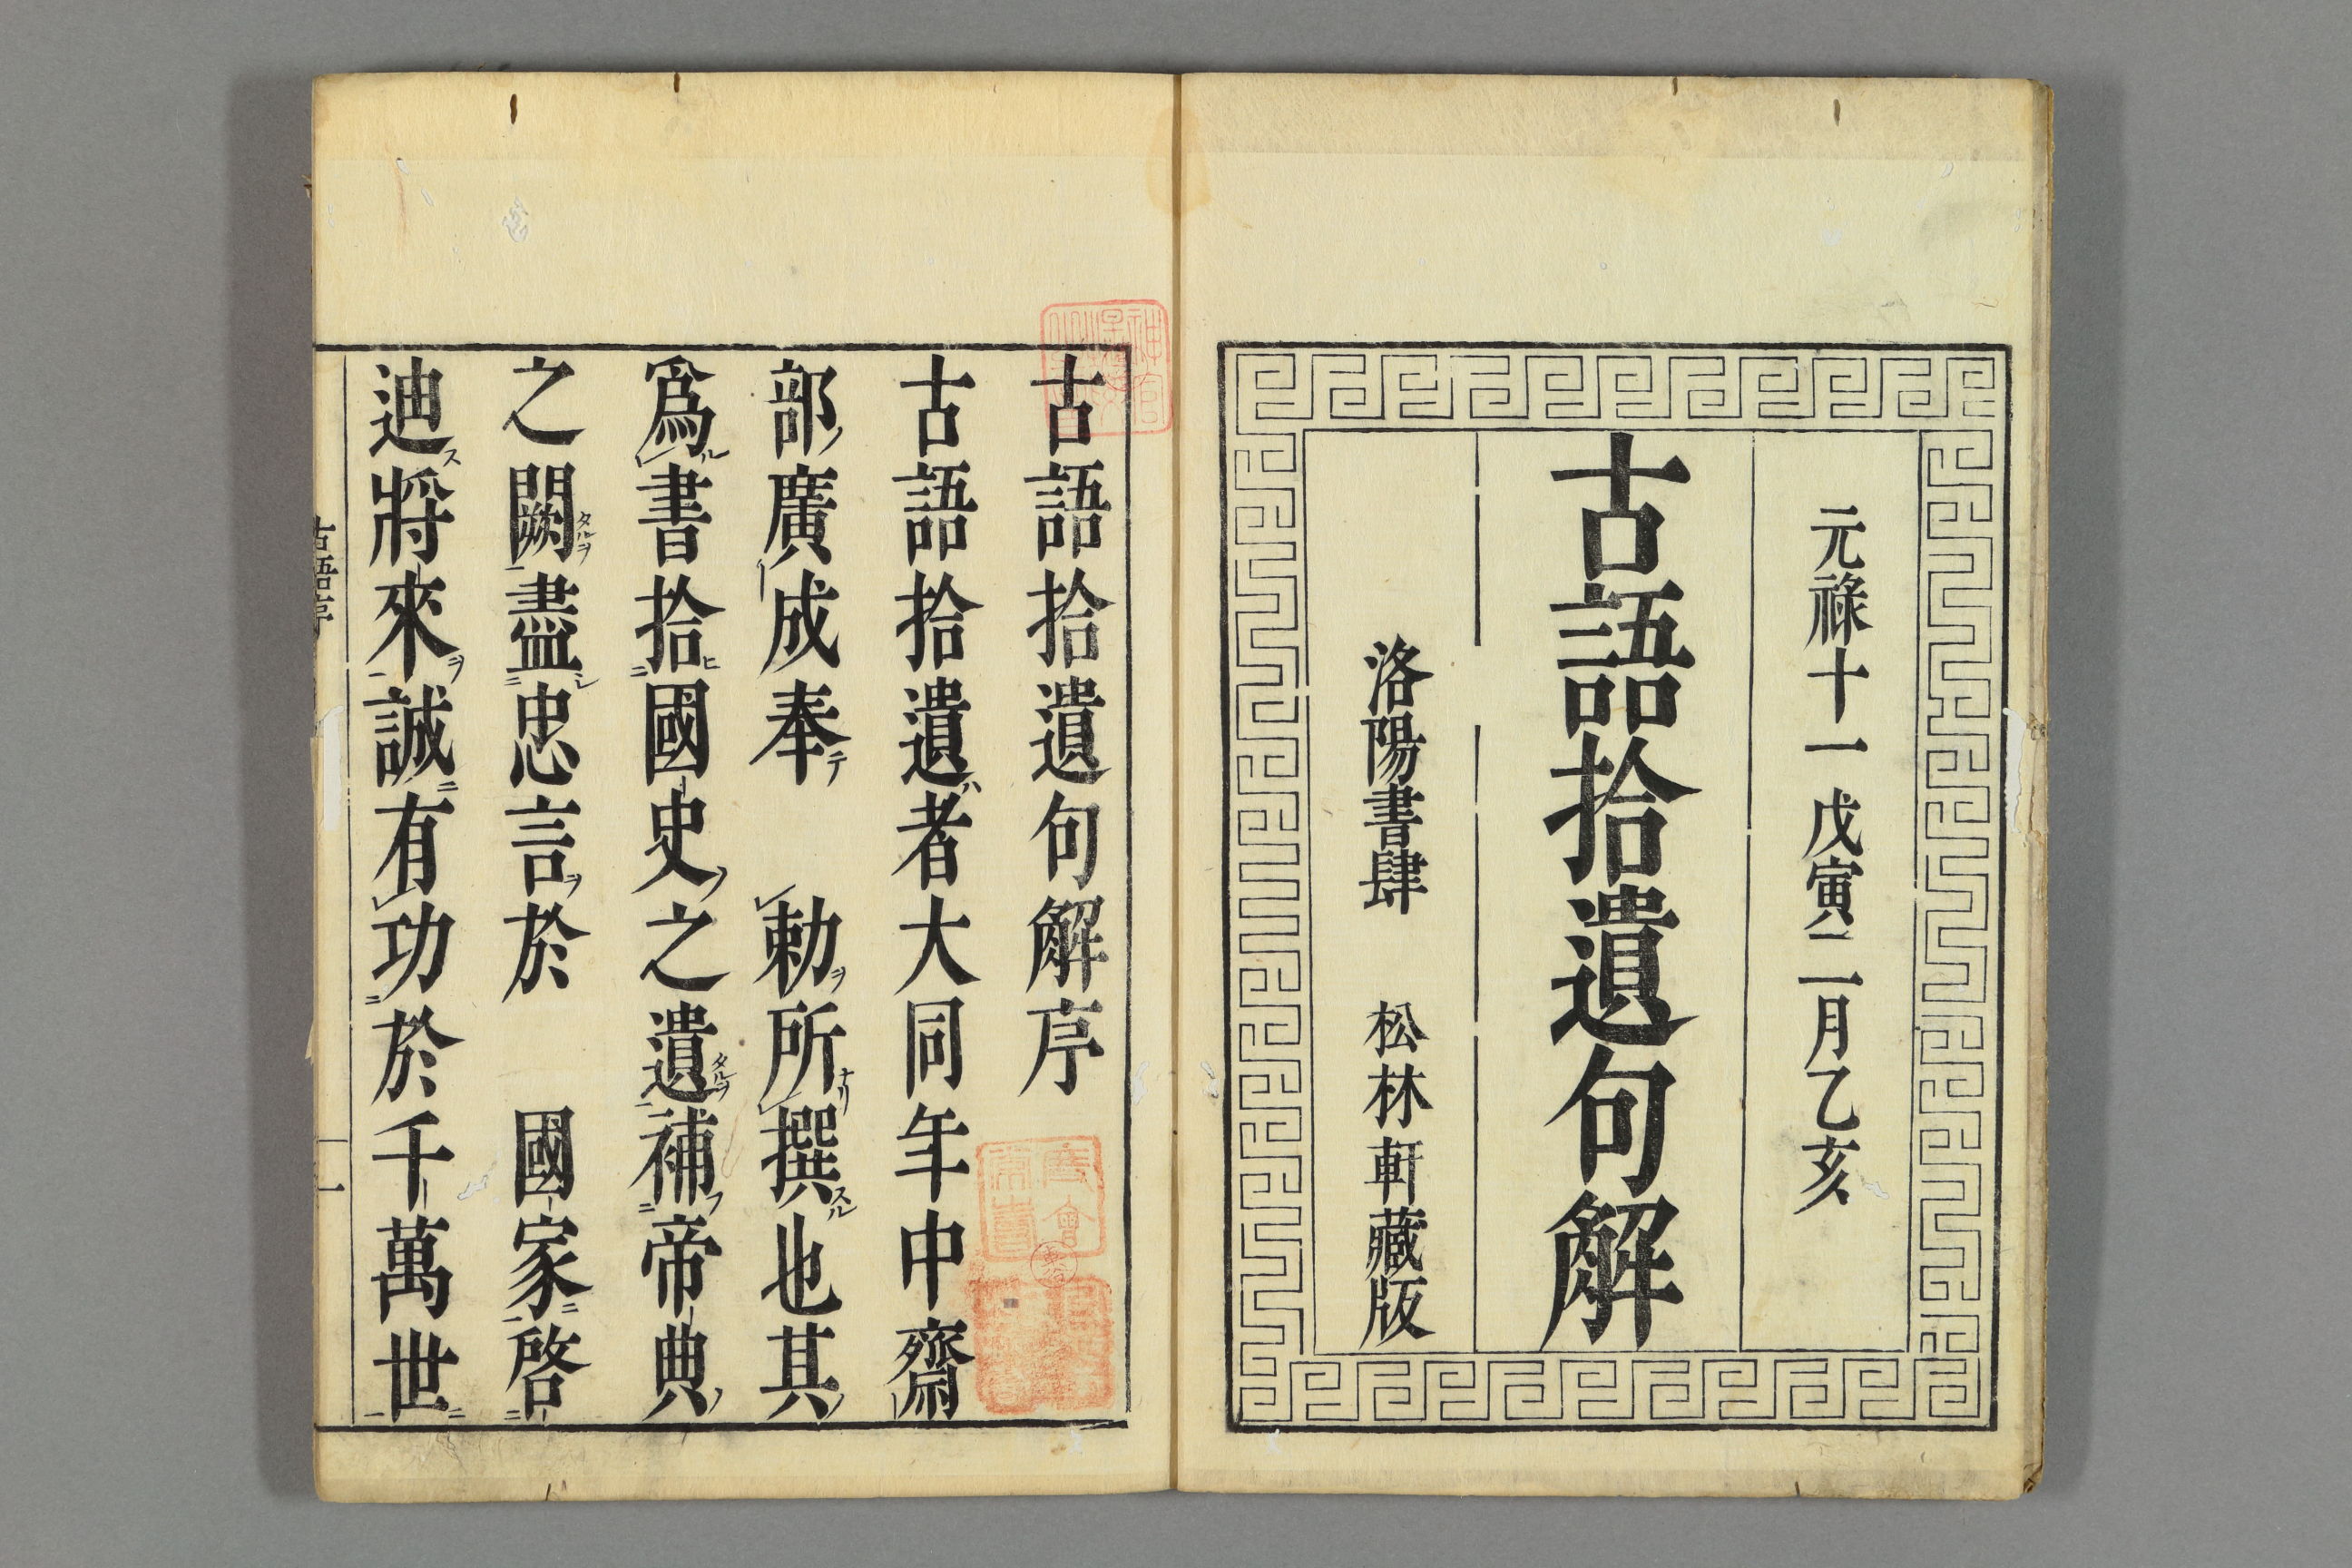 元禄十一戊寅二月乙亥
古語拾遺句解
洛陽書肆 松林軒藏版
古語拾遺句解序
古語拾遺者大同年中齋
部廣成奉 勅所撰也其
爲書拾國史之遺補帝典
之闕盡忠言於 國家啓
迪將來誠有功於千萬世